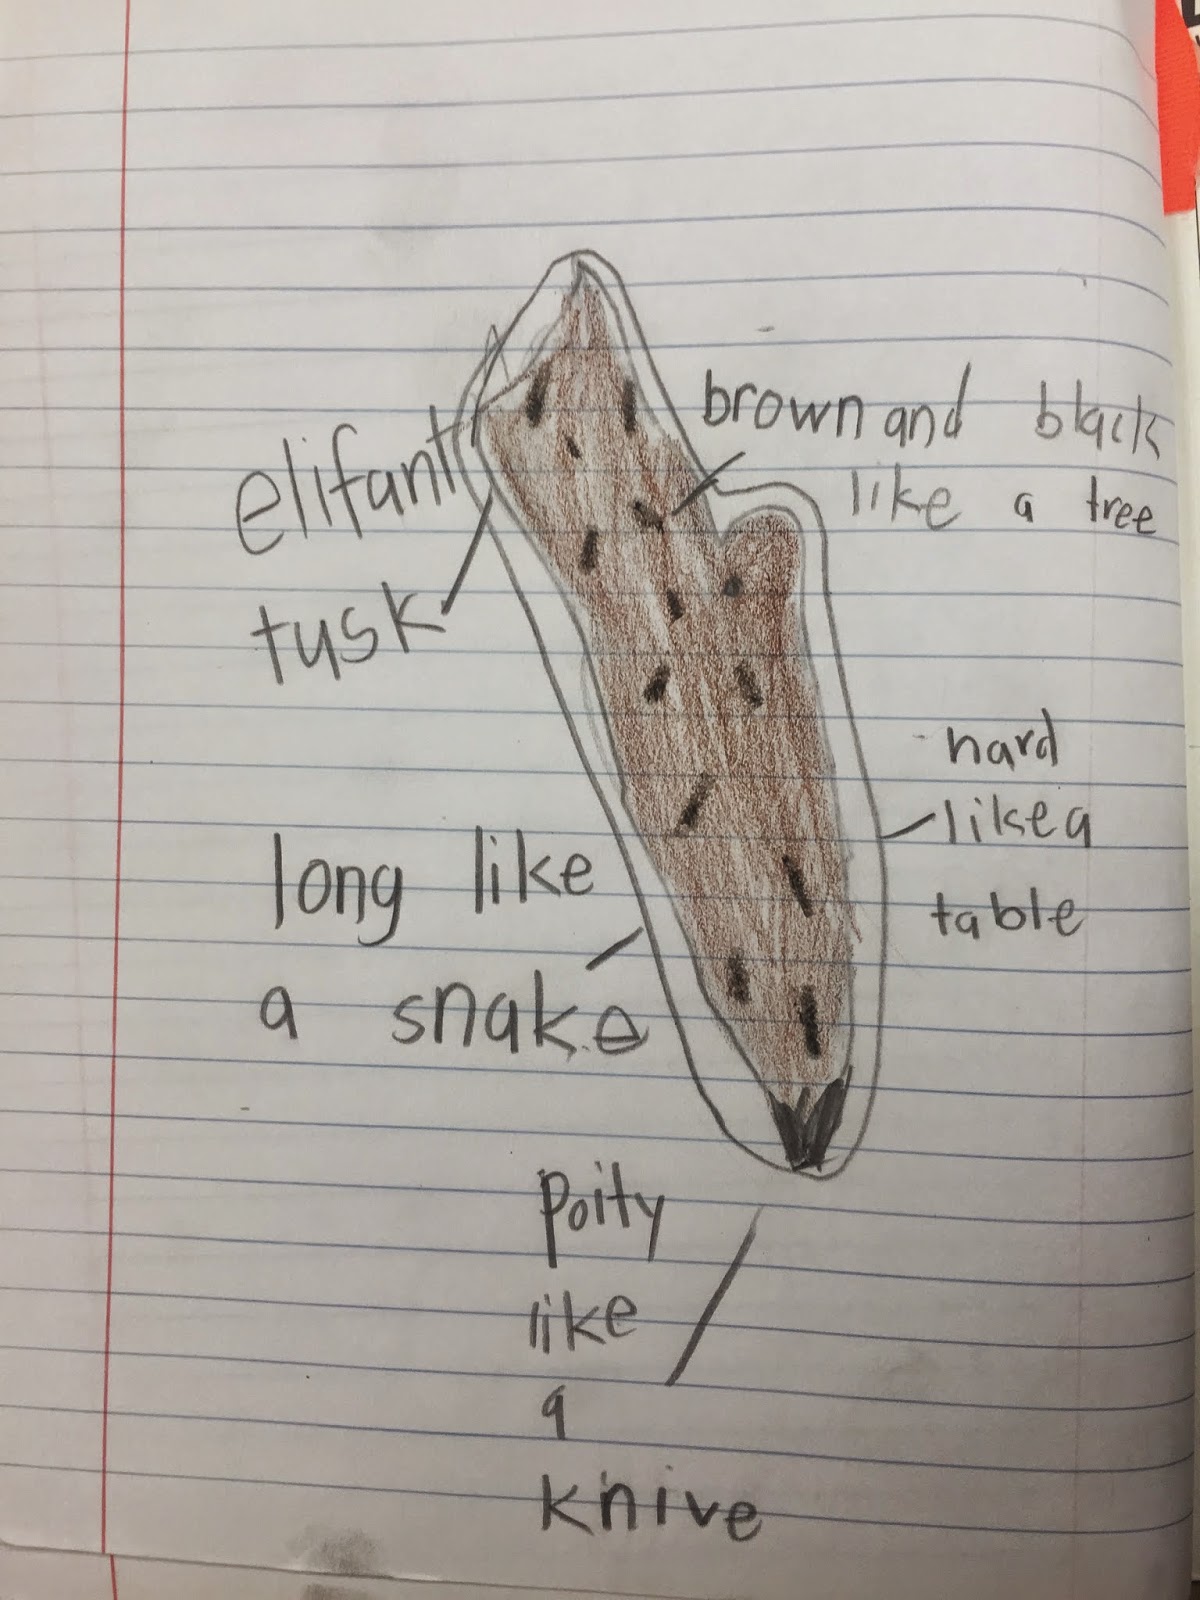 elifant
tusk
brown and black
like a tree
hard
like a
table
long like
a snake
poity
like
a
knive